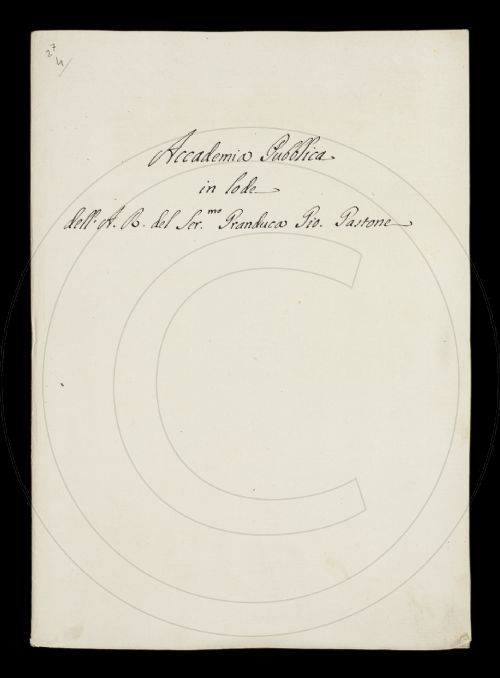 27
4/
Accademia Pubblica
in lode
dell'A. R. del Ser.mo Granduca Gio. Gastone